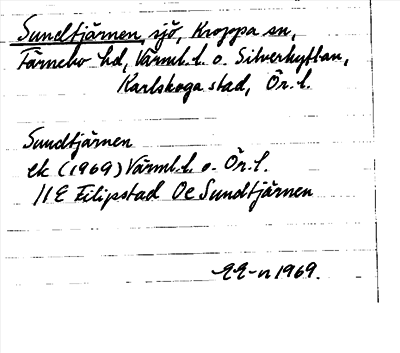 Sundtjärnen, sjö, Kroppa sn,
Färnebo hd, Värml. l. o. Silverhyttan,
Karlskoga stad, Ör. l.
Sundtjärnen
ek (1969) Värml. l. o. Ör. l.
11E Filipstad 0e Sundtjärnen
1969.